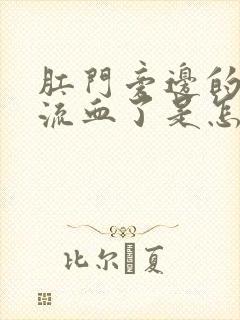 肛門旁邊的
流血了是怎
比尔夏